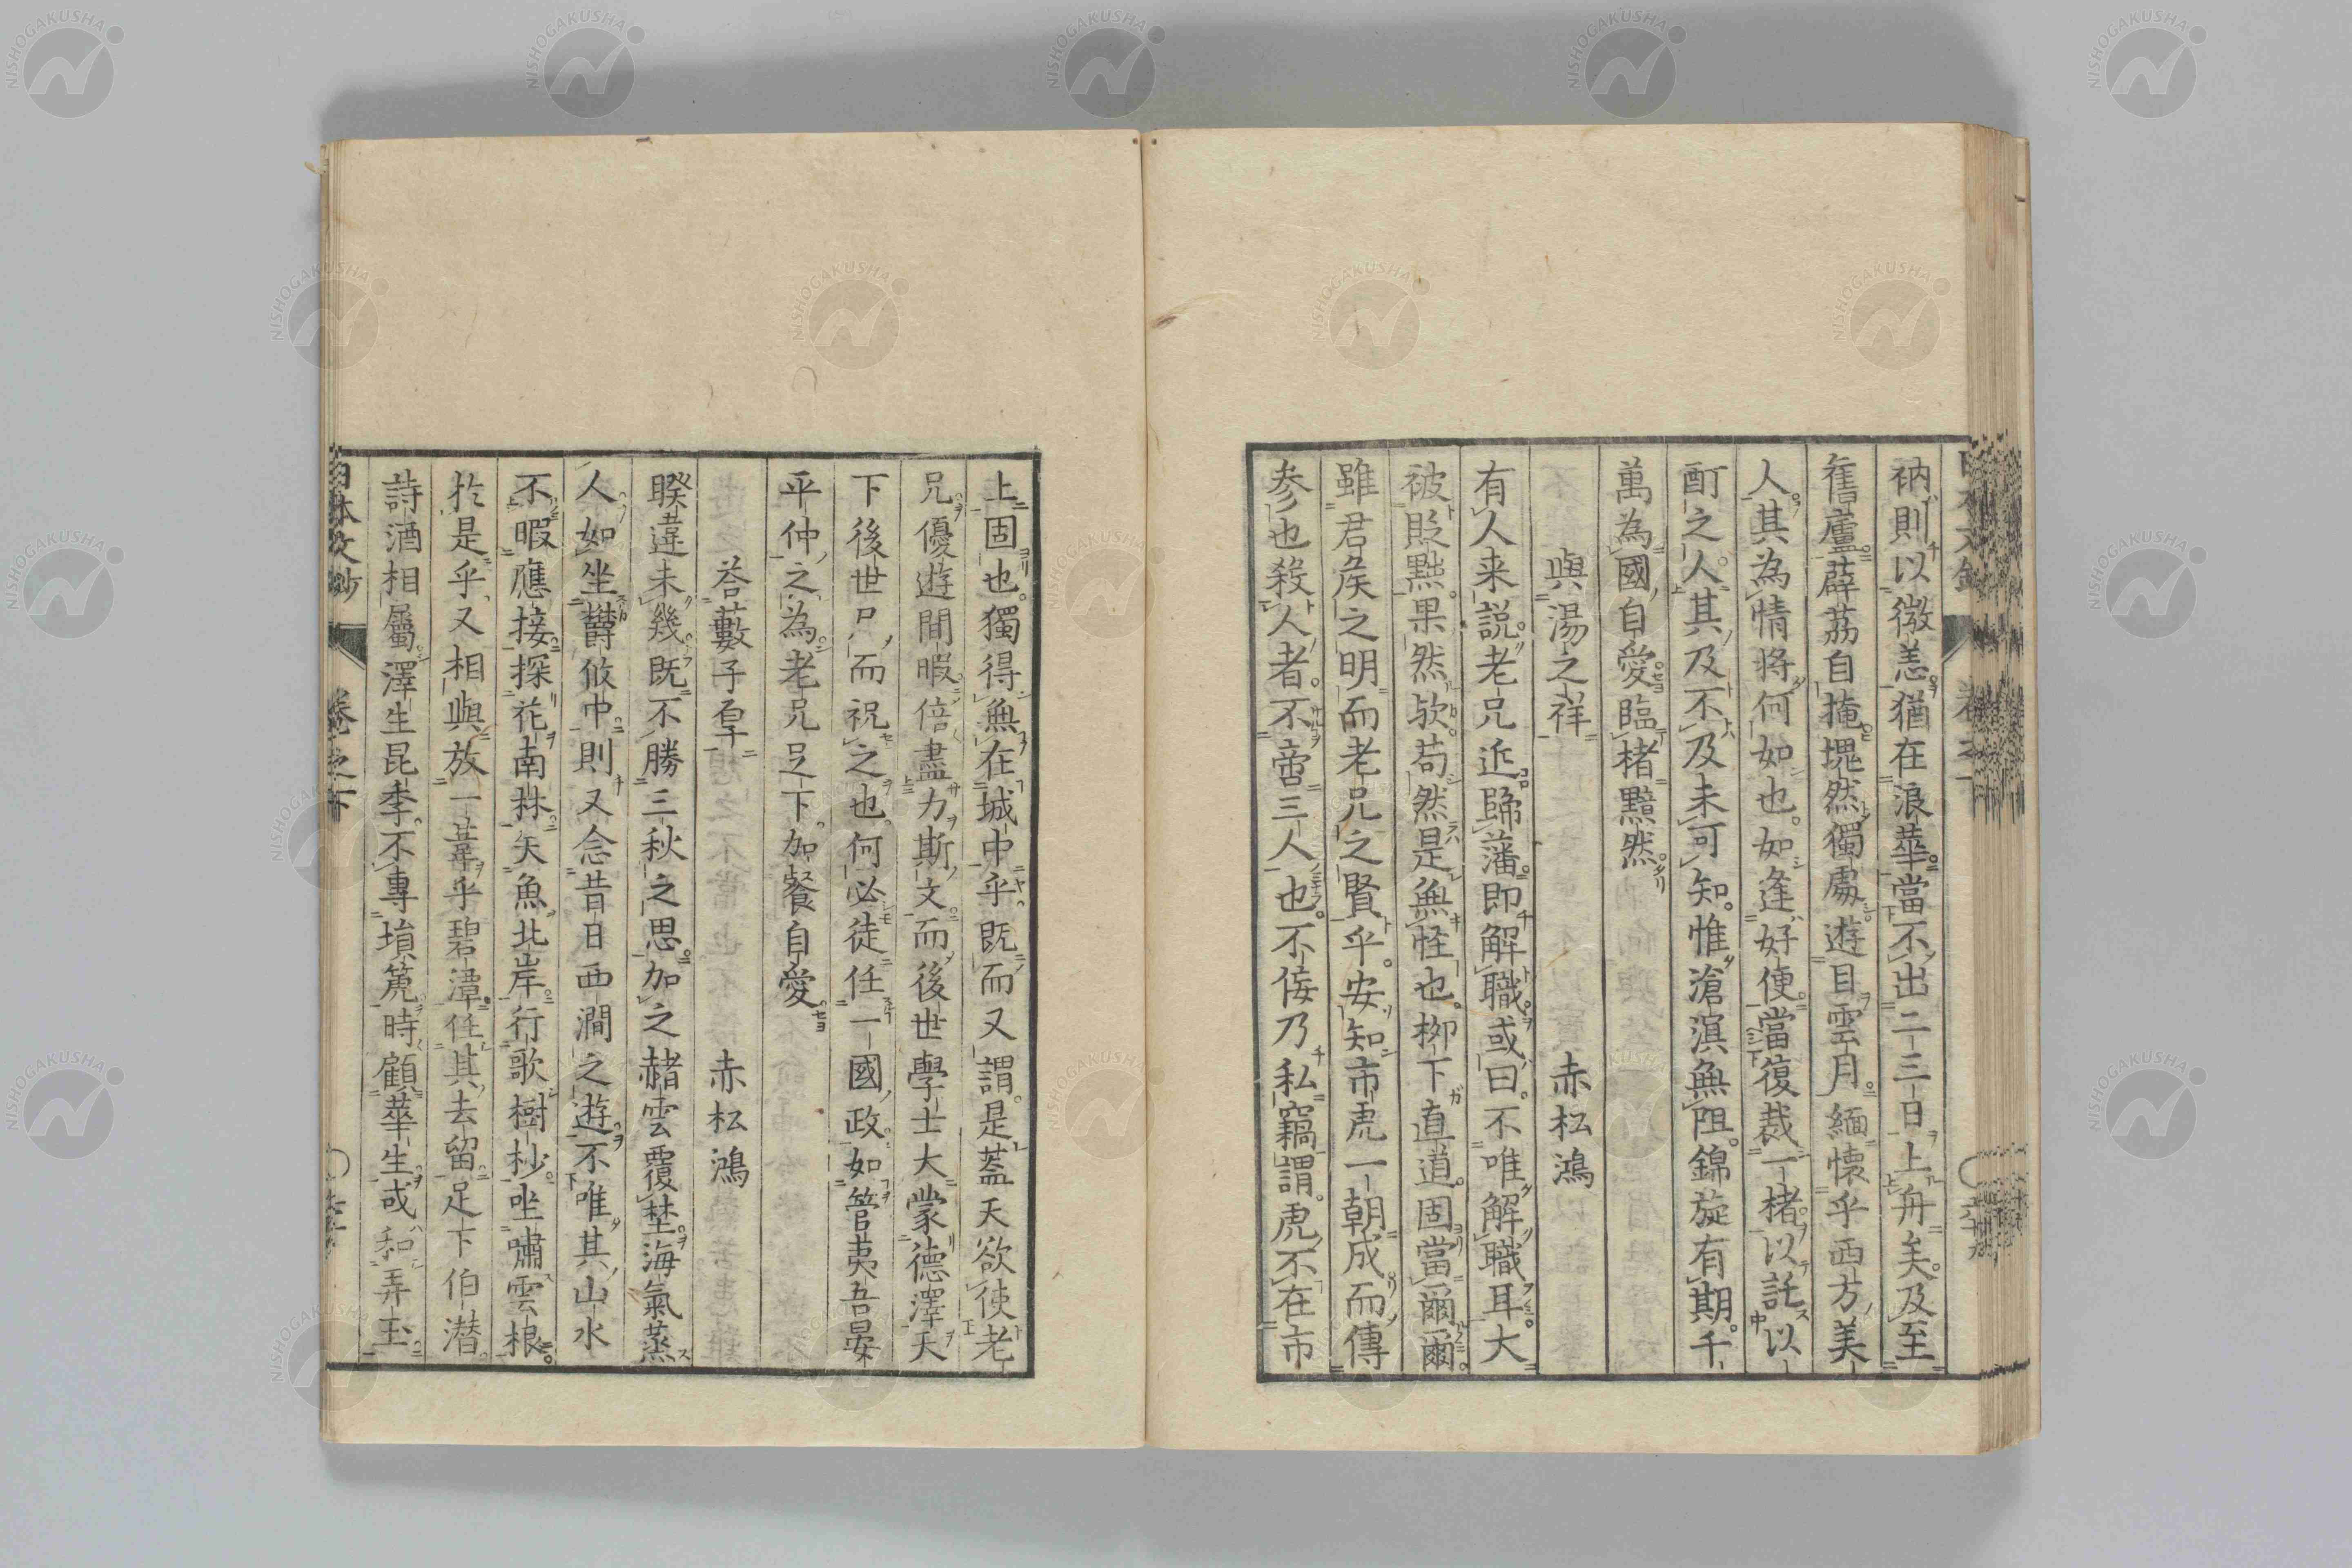 衲則以微恙猶在浪華當不出二三日上舟矣及至
舊廬薜荔自掩塊然獨處遊目雲月緬懷乎西方美
人其為情將何如也如逢好便當復裁一楮以託以
酊之人其及不及未可知惟滄溟無阻錦旋有期千
萬為國自愛臨楮黯然
與湯之祥 赤松鴻
有人来説老兄近歸藩即解職或曰不唯解職耳大
被貶黜果然欤苟然是無怪也柳下直道固當爾爾
雖君矦之明而老兄之賢乎安知市虎一朝成而傳
参也殺人者不啻三人也不佞乃私竊謂虎不在市
上固也獨得無在城中乎既而又謂是蓋天欲使老
兄優遊間暇倍盡力斯文而後世學士大蒙德澤天
下後世尸而祝之也何必徒任一國政如管夷吾晏
平仲之為老兄足下加餐自愛
荅藪子厚 赤松鴻
暌違未幾既不勝三秋之思加之赭雲覆埜海氣蒸
人如坐欝攸中則又念昔日西澗之遊不唯其山水
不暇應接探花南林矢魚北岸行歌樹杪坐嘯雲根
扵是乎又相與放一葦乎碧潭任其去留足下伯潜
詩酒相屬澤生昆季不專塤篪時顧華生或和弄玉
日本文鈔 卷之下
NISHOGAKUSHA